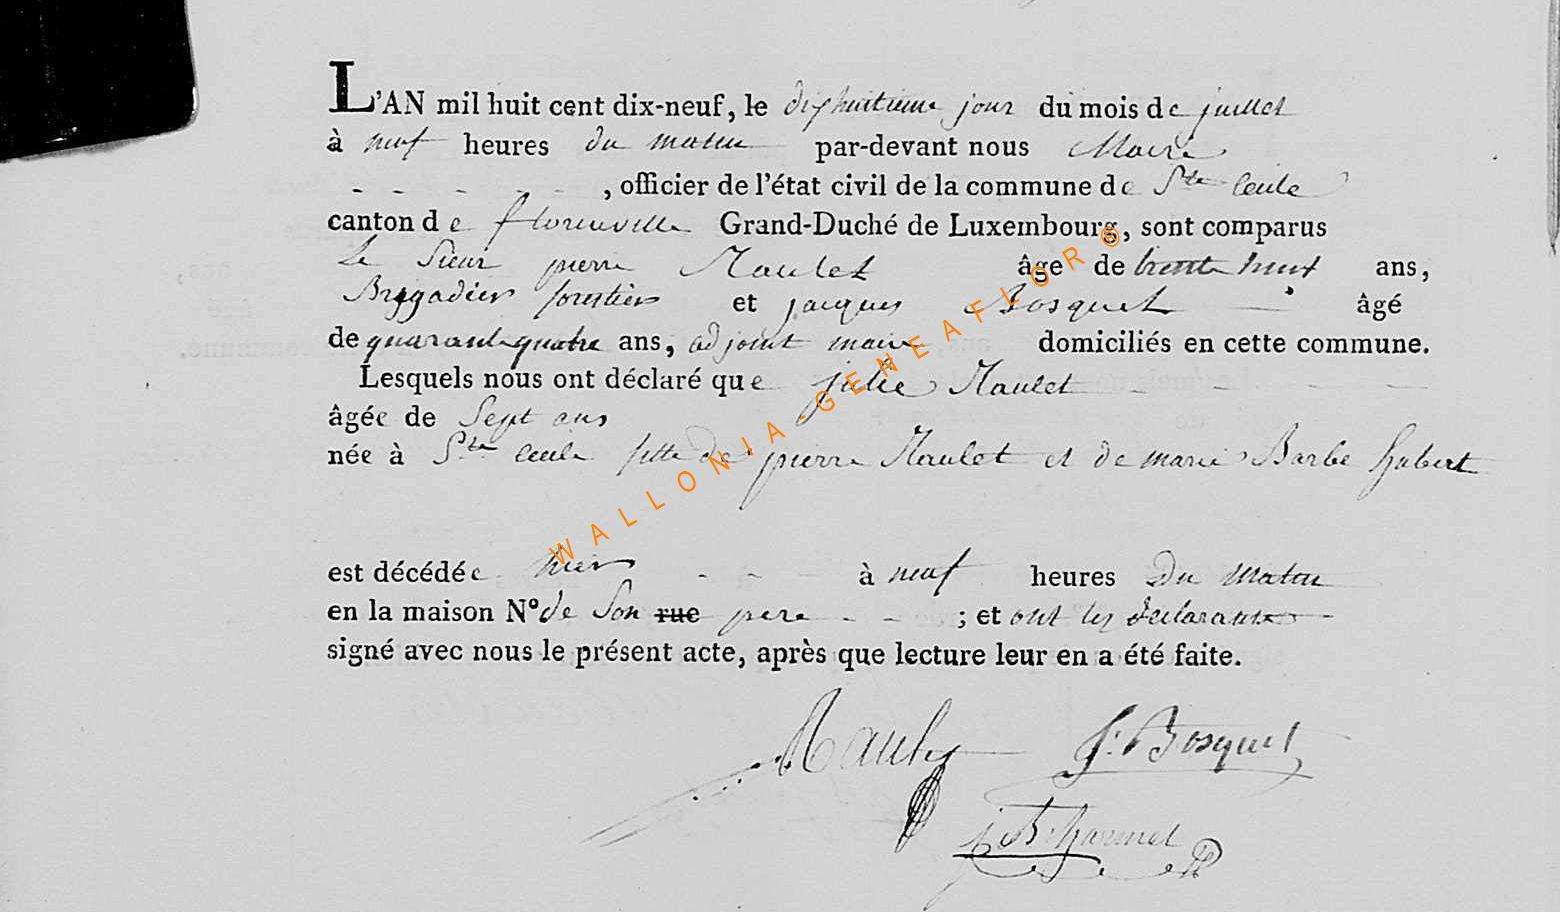 L'AN mil huit cent dix-neuf, le dixhuitieme jour du mois de juillet
à neuf heures du matin par-devant nous Maire
- - - - - , officier de l'état civil de la commune de Ste Cecile
canton de florenville Grand-Duché de Luxembourg, sont comparus
Le Sieur pierre Naulet âge de trente neuf ans,
Briggadier forestier et jacques Bosquet âgé
de quarante quatre ans, adjoint maire domiciliés en cette commune.
Lesquels nous ont déclaré que julie Naulet
âgée de Sept ans
née à Ste cecile fille de pierre Naulet et de marie Barbe hubert
est décédée hier - - - à neuf heures Du matin
en la maison N° de Son rue pere - - ; et ont les declarants
signé avec nous le présent acte, après que lecture leur en a été faite.
Naulet J. Bosquet
WALLONIA-GENEAFLOR©